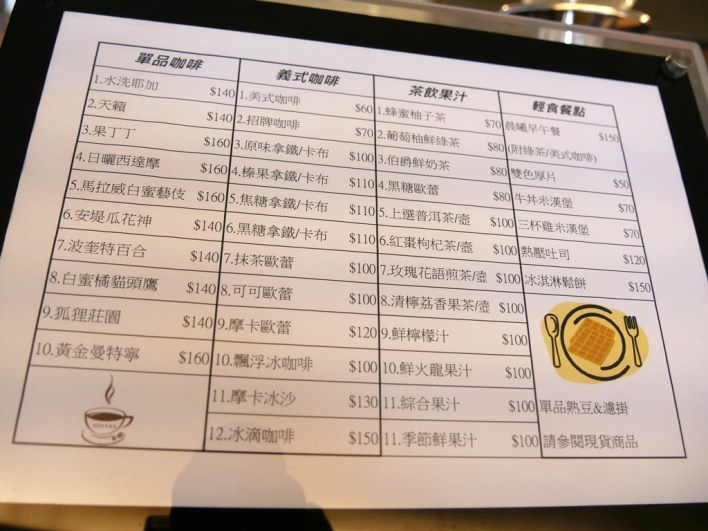 單品咖啡
1.水洗耶加 $140
2.天籟 $140
3.果丁丁 $160
4.日曬西達摩 $140
5.馬拉威白蜜藝伎 $160
6.安堤瓜花神 $140
7.波奎特百合 $140
8.白蜜橘貓頭鷹 $140
9.狐狸莊園 $140
10.黃金曼特寧 $160
義式咖啡
1.美式咖啡 $60
2.招牌咖啡 $70
3.原味拿鐵/卡布 $100
4.榛果拿鐵/卡布 $110
5.焦糖拿鐵/卡布 $110
6.黑糖拿鐵/卡布 $110
7.抹茶歐蕾 $100
8.可可歐蕾 $100
9.摩卡歐蕾 $120
10.飄浮冰咖啡 $100
11.摩卡冰沙 $130
12.冰滴咖啡 $150
茶飲果汁
1.蜂蜜柚子茶 $70
2.葡萄柚鮮綠茶 $80
3.伯爵鮮奶茶 $80
4.黑糖歐蕾 $80
5.上選普洱茶/壺 $100
6.紅棗枸杞茶/壺 $100
7.玫瑰花語煎茶/壺 $100
8.清檸荔香果茶/壺 $100
9.鮮檸檬汁 $100
10.鮮火龍果汁 $100
11.綜合果汁 $100
11.季節鮮果汁 $100
輕食餐點
晨曦早午餐 $150
(附綠茶/美式咖啡)
雙色厚片 $50
牛丼米漢堡 $70
三杯雞米漢堡 $70
熱壓吐司 $120
冰淇淋鬆餅 $150
單品熟豆&濾掛
請參閱現貨商品